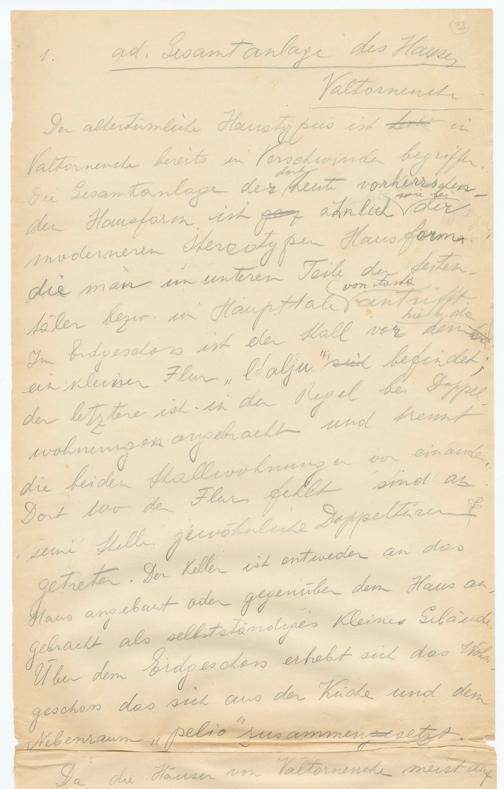 1. ad. Gesamtanlage des Hauses
Valtornenche
Der altertümliche Haustypus ist in
Valtornenche bereits in Verschwinden begriffen.
Die Gesamtanlage der dort heute vorherrschen-
den Hausform ist ähnlich wie bei der
moderneren stereotypen Hausform
die man im unteren Teile der Seiten-
täler bezw. in Haupttale von Aosta antrifft.
Im Erdgeschoss ist der Stall vor dem
ein kleiner Flur „ befindet;
der letztere ist in der Regel bei Doppel
wohnungen angebracht und trennt
die beiden Stallwohnungen vor einander.
Dort wo der Flur fehlt sind an
seine Stelle gewöhnliche Doppeltüren
getreten. Der Keller ist entweder an das
Haus angebaut oder gegenüber dem Haus an-
gebracht als selbstständiges kleines Gebäude.
Über dem Erdgeschoss erhebt sich das Wohn-
geschoss das sich aus der Küche und dem
Nebenraum „pelio“ zusammensetzt.
Da die Häuser von Valtornenche meist auf